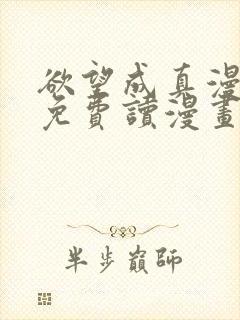 欲望成真漫
免費讀漫畫
半步巔師